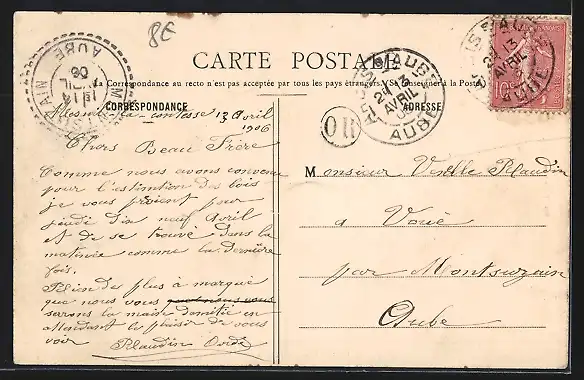 8€
CARTE POSTALE
La Correspondance au recto n'est pas acceptée par tous les pays étrangers. (Se Renseigner à la Poste)
CORRESPONDANCE
ADRESSE
Mesnil-la-comtesse 13 Avril
1906
Chers Beau Frère
Comme nous avons convenu
pour l'estimation des bois
je vous prévient pour
jeudi dix neuf Avril
et de se trouvé dans la
matinée comme la dernière
fois.
Rien des plus à marqué
que nous vous
serons la main d'amitié en
Attendant le plaisir de vous
voir
Plaudin
Monsieur Viélle Plaudin
a Voué
par Montsuzain
Aube
OR
AUBE
13
AVRIL
06
AUBE
10c